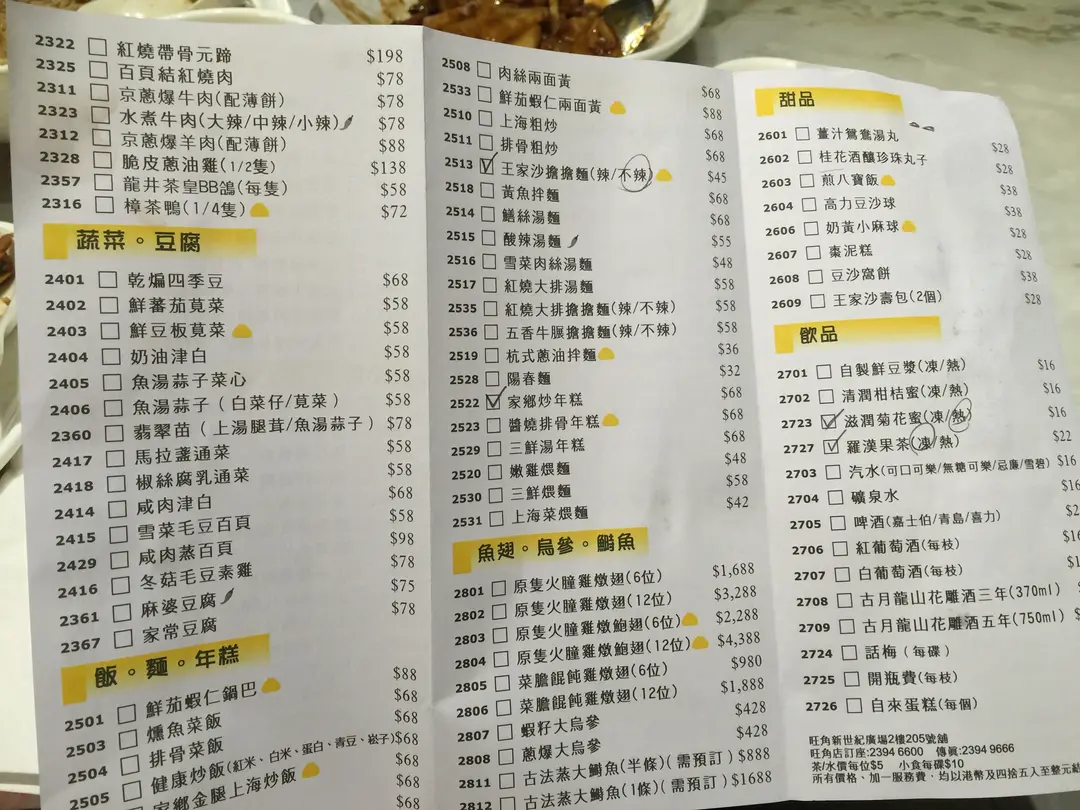 2322 紅燒帶骨元蹄 $198
2325 百頁結紅燒肉 $78
2311 京蔥爆牛肉(配薄餅) $78
2323 水煮牛肉(大辣/中辣/小辣) $78
2312 京蔥爆羊肉(配薄餅) $88
2328 脆皮蔥油雞(1/2隻) $138
2357 龍井茶皇BB鴿(每隻) $58
2316 樟茶鴨(1/4隻) $72
蔬菜。豆腐
2401 乾煸四季豆 $68
2402 鮮蕃茄莧菜 $58
2403 鮮豆板莧菜 $58
2404 奶油津白 $58
2405 魚湯蒜子菜心 $58
2406 魚湯蒜子（白菜仔/莧菜） $58
2360 翡翠苗（上湯腿茸/魚湯蒜子） $78
2417 馬拉盞通菜 $58
2418 椒絲腐乳通菜 $58
2414 咸肉津白 $68
2415 雪菜毛豆百頁 $58
2429 咸肉蒸百頁 $98
2416 冬菇毛豆素雞 $78
2361 麻婆豆腐 $75
2367 家常豆腐 $78
飯。麵。年糕
2501 鮮茄蝦仁鍋巴 $88
2503 燻魚菜飯 $68
2504 排骨菜飯 $68
2505 健康炒飯(紅米、白米、蛋白、青豆、崧子) $68
家鄉金腿上海炒飯 $68
$68
2508 肉絲兩面黃 $68
2533 鮮茄蝦仁兩面黃 $88
2510 上海粗炒 $68
2511 排骨粗炒 $68
2513 王家沙擔擔麵(辣/不辣) $45
2518 黃魚拌麵 $68
2514 鱔絲湯麵 $68
2515 酸辣湯麵 $55
2516 雪菜肉絲湯麵 $48
2517 紅燒大排湯麵 $58
2535 紅燒大排擔擔麵(辣/不辣) $58
2536 五香牛𦟌擔擔麵(辣/不辣) $58
2519 杭式蔥油拌麵 $36
2528 陽春麵 $32
2522 家鄉炒年糕 $68
2523 醬燒排骨年糕 $68
2529 三鮮湯年糕 $68
2520 嫩雞煨麵 $48
2530 三鮮煨麵 $58
2531 上海菜煨麵 $42
魚翅。烏參。鰣魚
2801 原隻火朣雞燉翅(6位) $1,688
2802 原隻火朣雞燉翅(12位) $3,288
2803 原隻火朣雞燉鮑翅(6位) $2,288
2804 原隻火朣雞燉鮑翅(12位) $4,388
2805 菜膽餛飩雞燉翅(6位) $980
2806 菜膽餛飩雞燉翅(12位) $1,888
2807 蝦籽大烏參 $428
2808 蔥爆大烏參 $428
2811 古法蒸大鰣魚(半條)(需預訂) $888
2812 古法蒸大鰣魚(1條)(需預訂) $1688
甜品
2601 薑汁鴛鴦湯丸 $28
2602 桂花酒釀珍珠丸子 $28
2603 煎八寶飯 $38
2604 高力豆沙球 $38
2606 奶黃小麻球 $28
2607 棗泥糕 $28
2608 豆沙窩餅 $38
2609 王家沙壽包(2個) $28
飲品
2701 自製鮮豆漿(凍/熱) $16
2702 清潤柑桔蜜(凍/熱) $16
2723 滋潤菊花蜜(凍/熱) $16
2727 羅漢果茶(凍/熱) $22
2703 汽水(可口可樂/無糖可樂/忌廉/雪碧) $16
2704 礦泉水
2705 啤酒(嘉士伯/青島/喜力)
2706 紅葡萄酒(每枝)
2707 白葡萄酒(每枝)
2708 古月龍山花雕酒三年(370ml)
2709 古月龍山花雕酒五年(750ml)
2724 話梅（每碟）
2725 開瓶費(每枝)
2726 自來蛋糕(每個)
旺角新世紀廣場2樓205號舖
旺角店訂座:2394 6600 傳真:2394 9666
茶/水價每位$5 小食每碟$10
所有價格、加一服務費，均以港幣及四捨五入至整元結